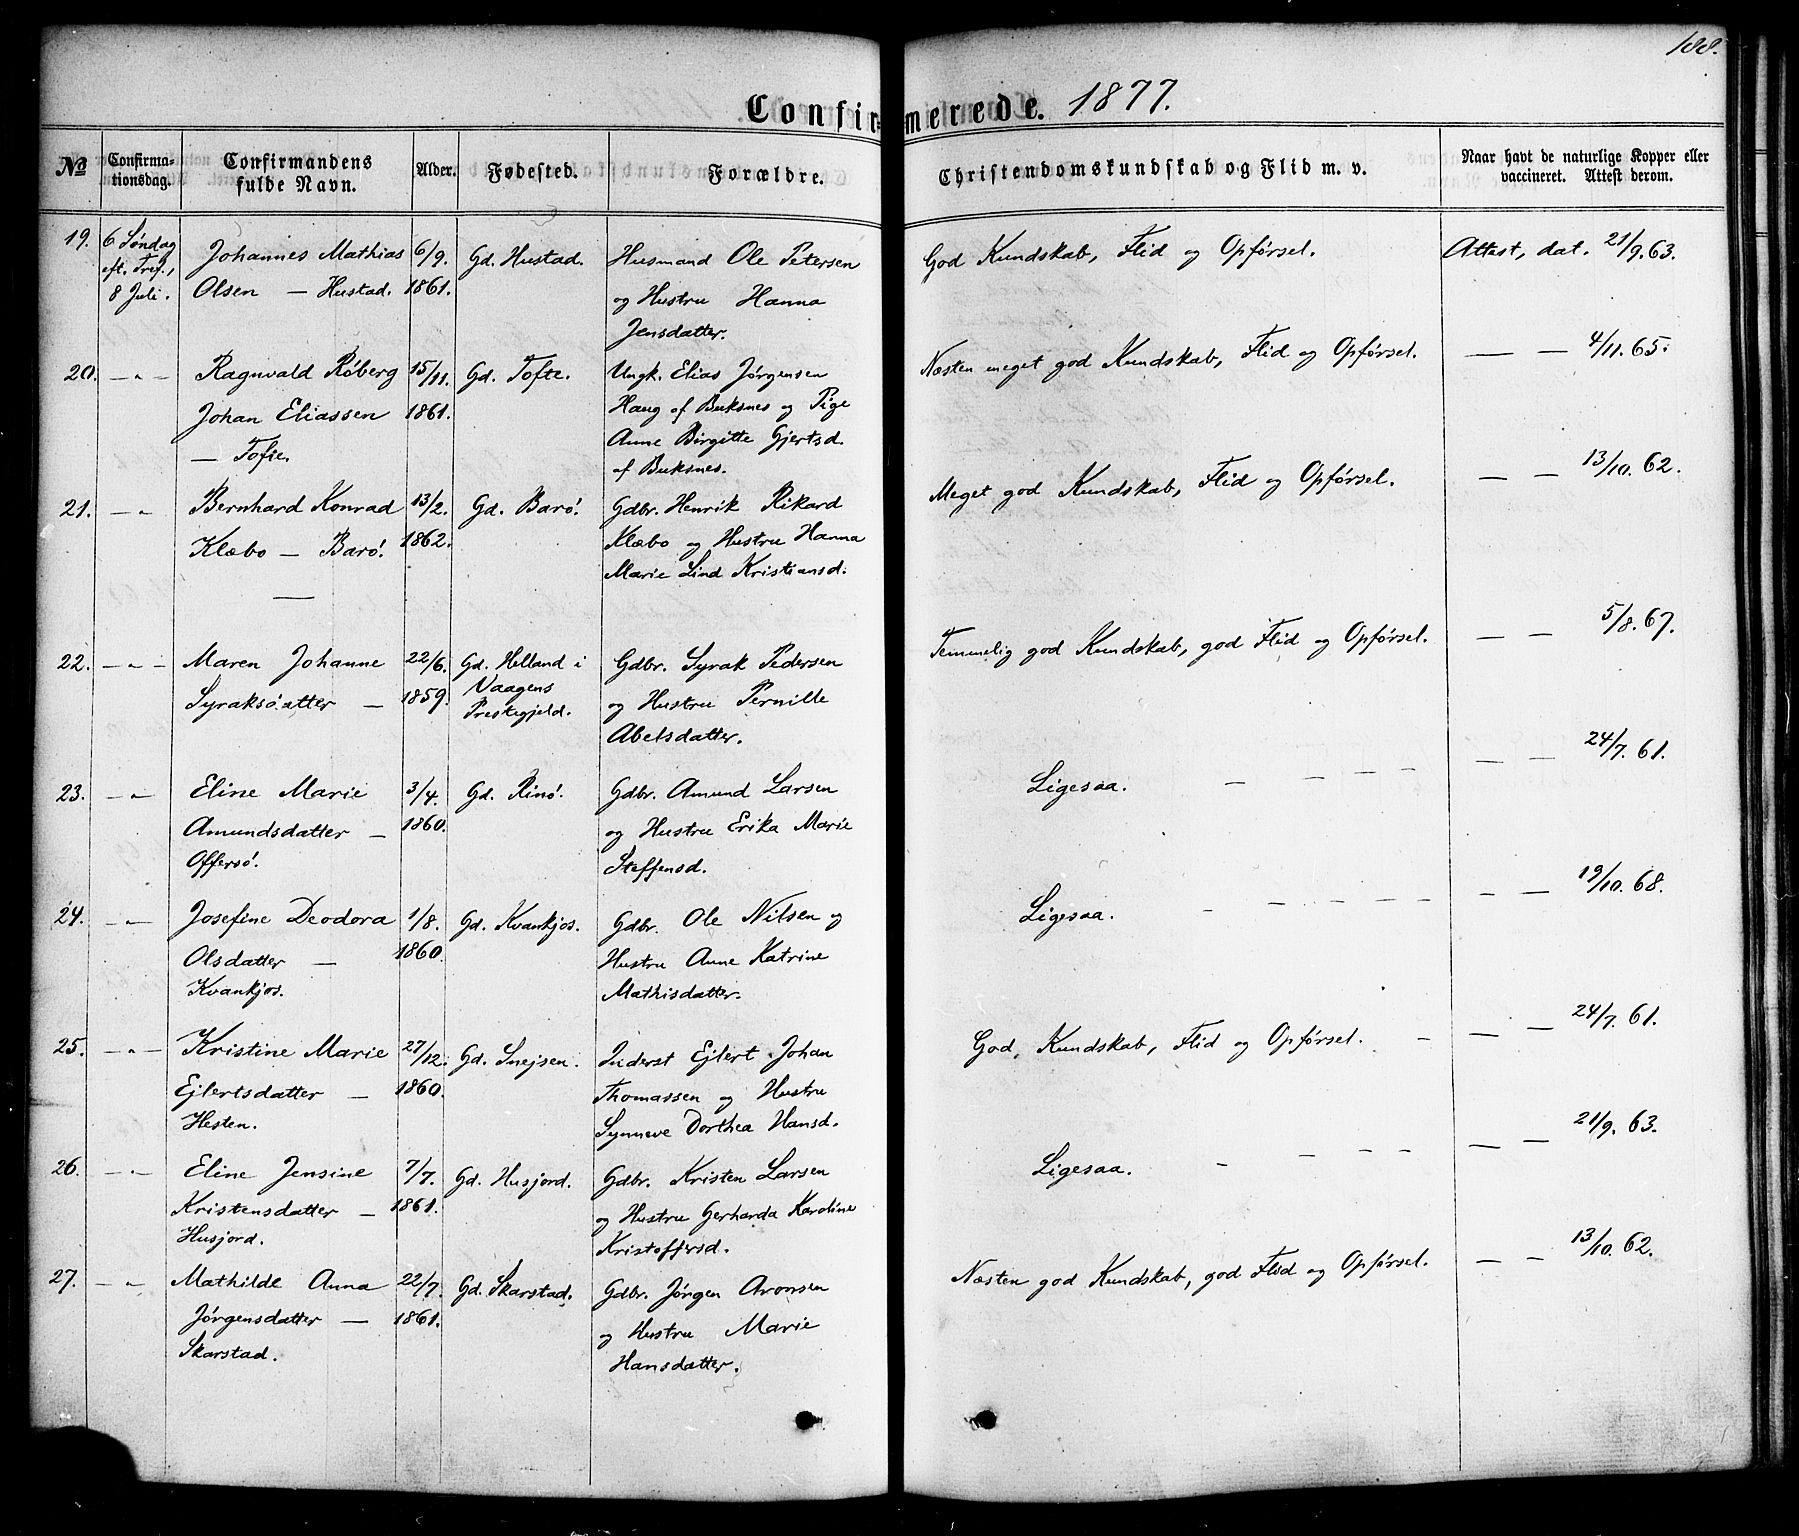 188.
Confirmerede. 1877.
No
Confirma-
tionsdag.
Confirmandens
fulde Navn.
Alder.
Fødested.
Forældre.
Christendomskundskab og Flid m. v.
Naar havt de naturlige Kopper eller
vaccineret. Attest derom.
19. 6 Søndag Johannes Mathias 6/9. Gd. Hustad. Husmand Ole Petersen God Kundskab, Flid og Opførsel. Attest, dat. 21/9. 63.
eft. Tref., Olsen — Hustad. 1861. og Hustru Hanna
8 Juli. Jensdatter.
20. — " — Ragnvald Røberg 15/11. Gd. Tofte. Ungk. Elias Jørgensen Næsten meget god Kundskab, Flid og Opførsel. — — 4/11. 65.
Johan Eliassen 1861. Haug af Buksnes og Pige
— Tofte. Anne Birgitte Gjertsd.
af Buksnes.
21. — " Bernhard Konrad 13/2. Gd. Barø. Gdbr. Henrik Rikard Meget god Kundskab, Flid og Opførsel. — — 13/10. 62.
Klæbo — Barø. 1862. Klæbo og Hustru Hanna
Marie Lind Kristiansd.
—
22. — " — Maren Johanne 22/6. Gd. Helland i Gdbr. Syrak Pedersen Temmelig god Kundskab, god Flid og Opførsel. — — 5/8. 67.
Syraksdatter — 1859. Vaagens og Hustru Pernille
Prestegjeld. Abelsdatter.
23. — " — Eline Marie 3/4. Gd. Rinø. Gdbr. Amund Larsen Ligesaa. — — — — — — 24/7. 61.
Amundsdatter — 1860. og Hustru Erika Marie
Offersø. Steffensd.
24. — " — Josefine Deodora 1/8. Gd. Kvankjos. Gdbr. Ole Nilsen og Ligesaa. — — — — — — — 19/10. 68.
Olsdatter — 1860. Hustru Anne Katrine
Kvankjos. Mathisdatter.
25. — " — Kristine Marie 27/12. Gd. Snejsen. Inderst Ejlert Johan God, Kundskab, Flid og Opførsel. — — — 24/7. 61.
Ejlertsdatter — 1860. Thomassen og Hustru
Hesten. Synneve Dorthea Hansd.
26. — " — Eline Jensine 7/7. Gd. Husjord. Gdbr. Kristen Larsen Ligesaa. — — — — — — 21/9. 63.
Kristensdatter — 1861. og Hustru Gerharda Karoline
Husjord. Kristoffersd.
27. — " Mathilde Anna 22/7. Gd. Skarstad. Gdbr. Jørgen Aronsen Næsten god Kundskab, god Flid og Opførsel. — — 13/10. 62.
Jørgensdatter — 1861. og Hustru Marie
Skarstad. Hansdatter.